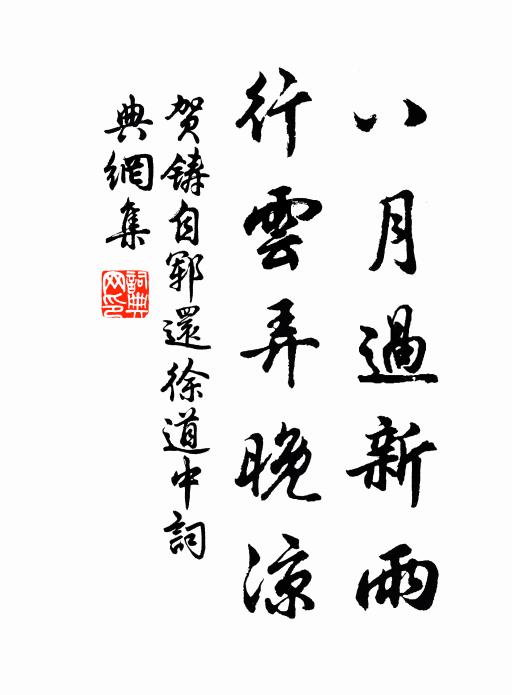 八月過新雨
行雲弄晚涼
賀鑄自鄆還徐道中詞
典網集
詞典網印